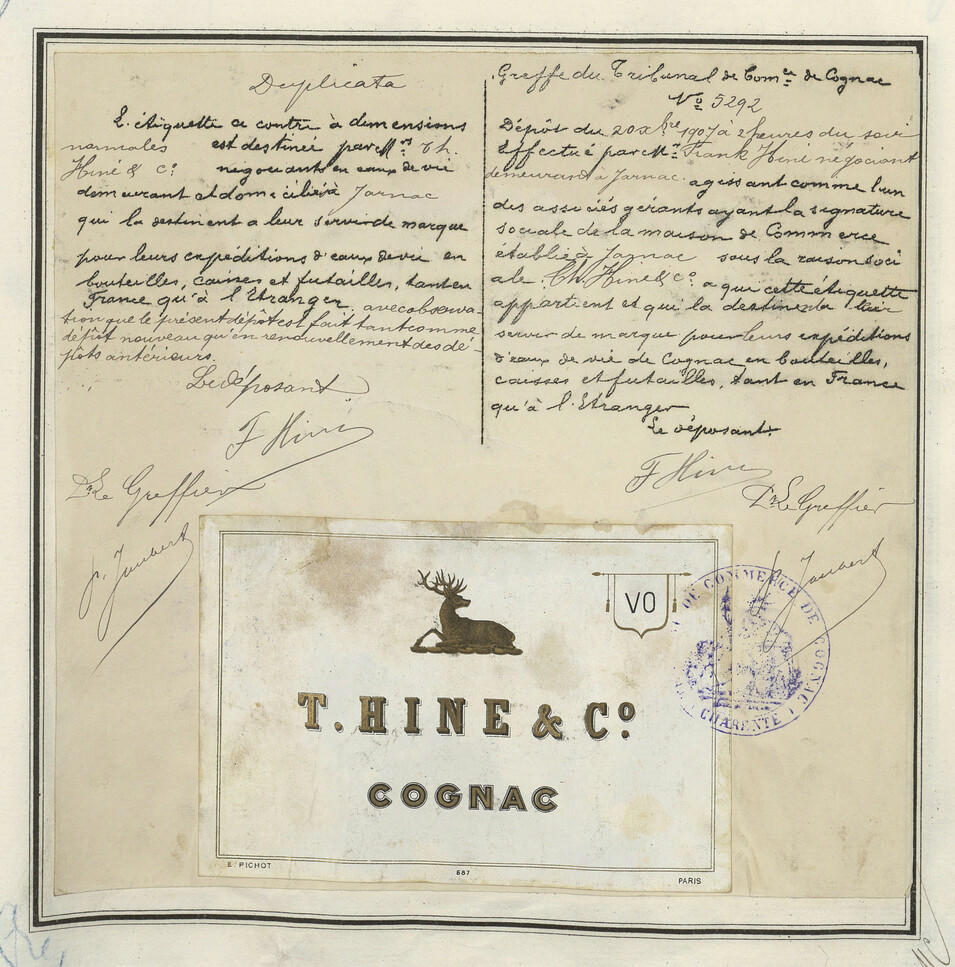 Duplicata
L'étiquette ci contre à dimensions
normales est destinée par Mrs Th.
Hine & Co. négociants en eaux de vie
demeurant et domicilié à Jarnac
qui la destinent a leur servir de marque
pour leurs expéditions d'eaux de vie en
bouteilles, caisses et futailles, tant en
France qu'à l'Etranger avec observa-
tion que le présent dépôt est fait tant comme
dépôt nouveau qu'en renouvellement des dé-
pôts antérieurs.
Le déposant
F Hine
Pr Le Greffier
Greffe du Tribunal de Comce de Cognac
No 5292
Dépôt du 20 Xbre 1907 à 2 heures du soir
Effectué par Mr Frank Hine négociant
demeurant à Jarnac agissant comme l'un
des associés gérants ayant la signature
sociale de la maison de Commerce
établie à Jarnac sous la raison soci
ale Th. Hine & Co. a qui cette étiquette
appartient et qui la destine à leur
servir de marque pour leurs expéditions
d'eaux de vie de Cognac en bouteilles,
caisses et futailles, tant en France
qu'à l'Etranger
Le déposant.
F Hine
Pr Le Greffier
VO
T. HINE & Co
COGNAC
E. PICHOT
587
PARIS
DE COMMERCE DE COGNAC
CHARENTE